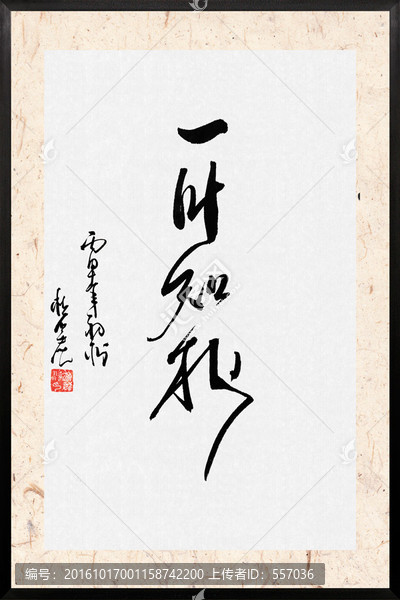 一叶知秋
丙申年初秋
编号：20161017001158742200 上传者ID：557036